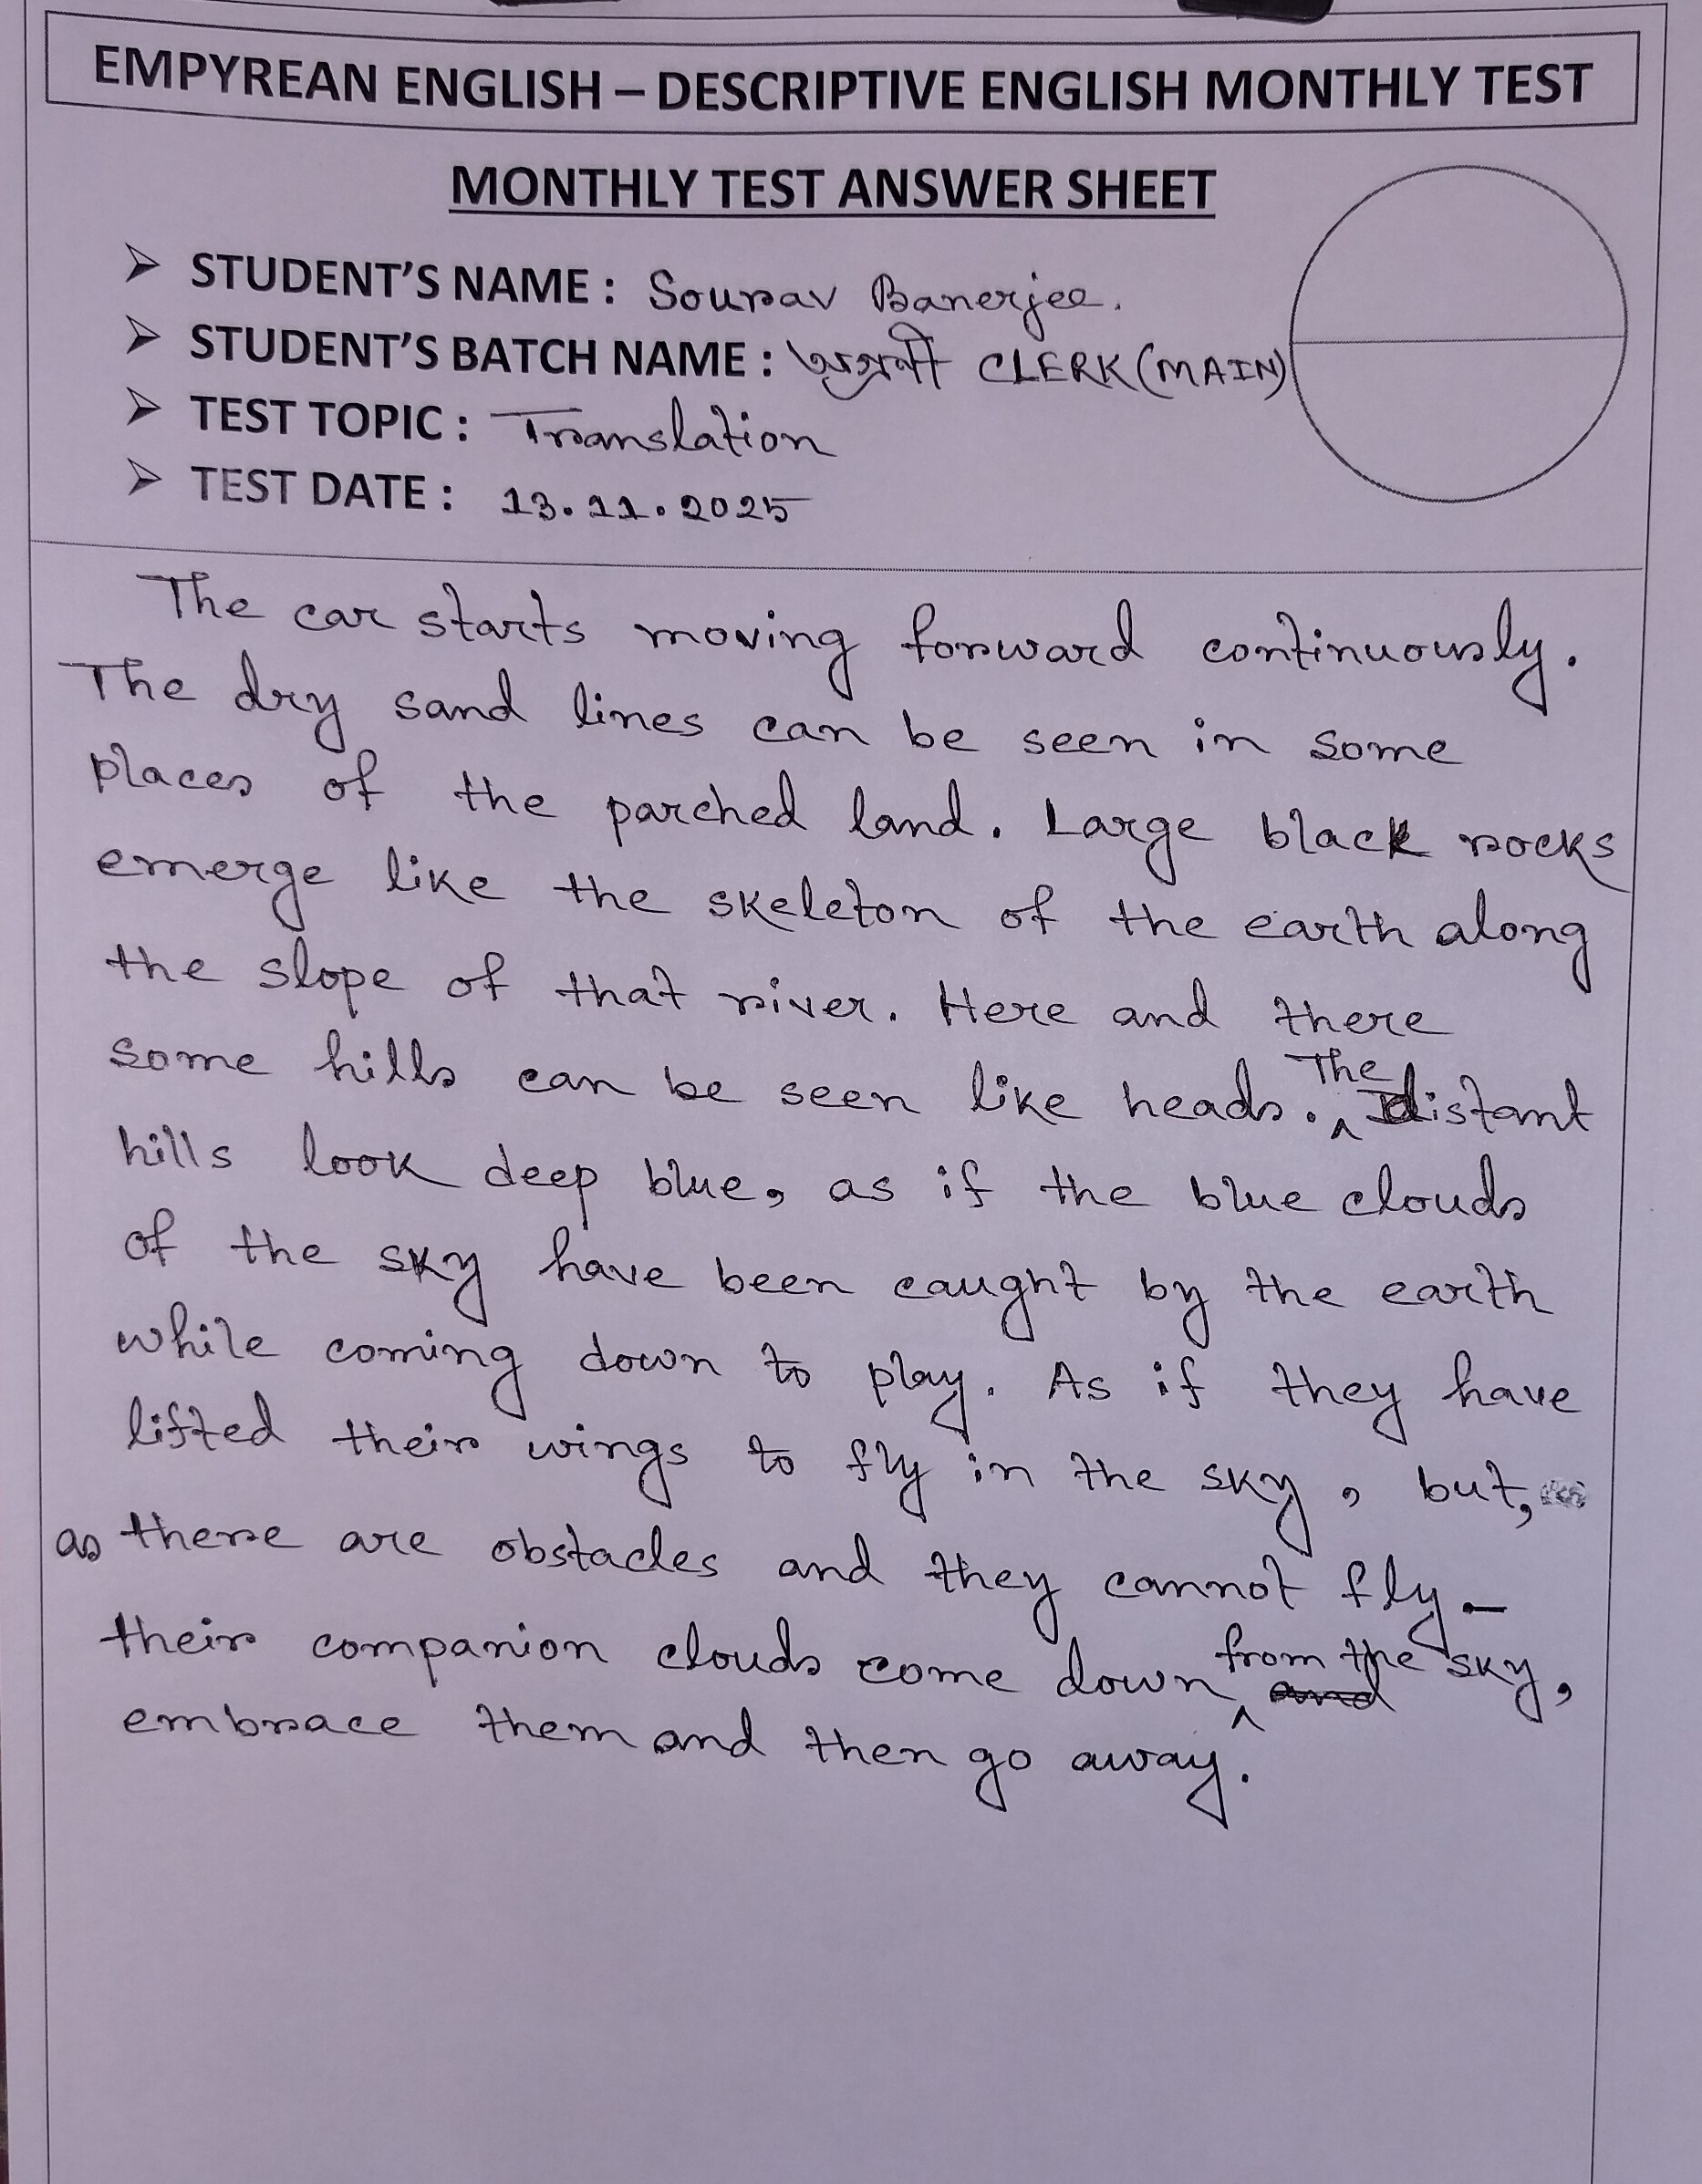 EMPYREAN ENGLISH – DESCRIPTIVE ENGLISH MONTHLY TEST
MONTHLY TEST ANSWER SHEET
➢ STUDENT'S NAME : Sourav Banerjee.
➢ STUDENT'S BATCH NAME : অগ্রণী CLERK (MAIN)
➢ TEST TOPIC : Translation
➢ TEST DATE : 13.11.2025
The car starts moving forward continuously.
The dry sand lines can be seen in some
places of the parched land. Large black rocks
emerge like the skeleton of the earth along
the slope of that river. Here and there
some hills can be seen like heads. The distant
hills look deep blue, as if the blue clouds
of the sky have been caught by the earth
while coming down to play. As if they have
lifted their wings to fly in the sky, but,
as there are obstacles and they cannot fly –
their companion clouds come down from the sky,
embrace them and then go away.